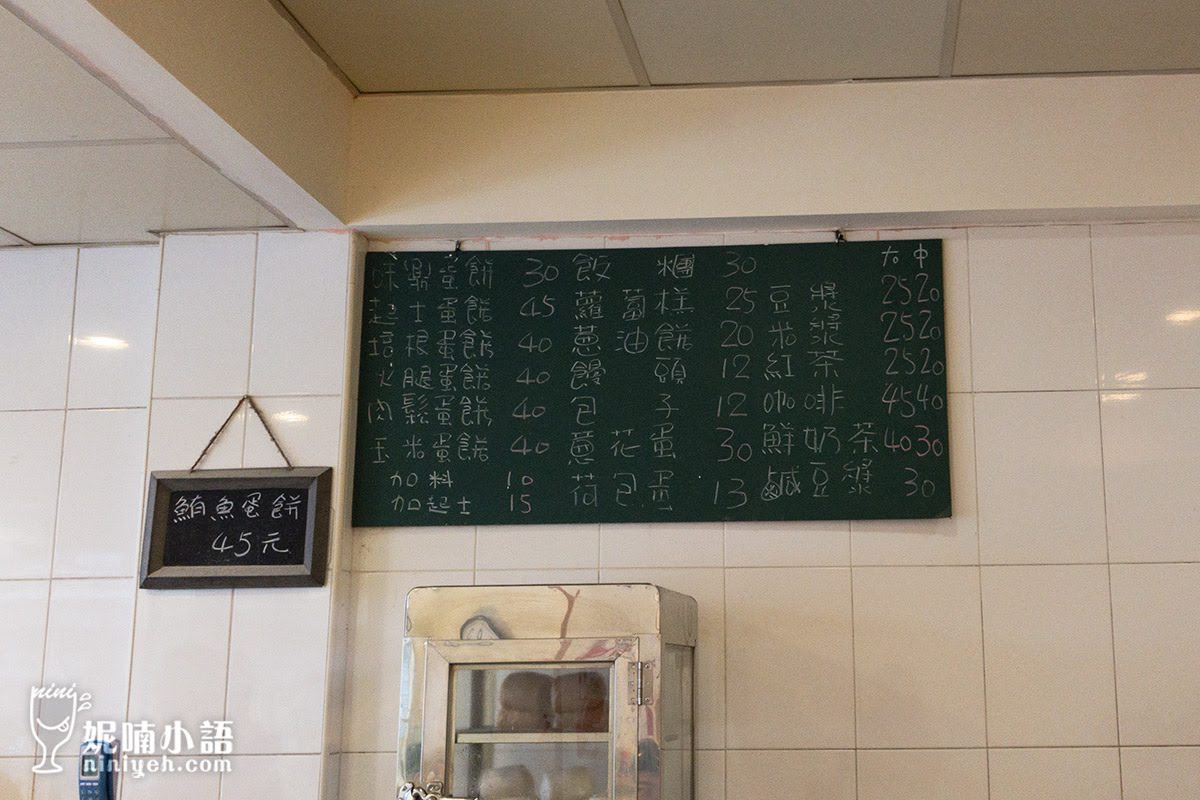 味鼎蛋餅 30 飯糰 30 大 中
起士蛋餅 45 蘿蔔糕 25 豆漿 25 20
培根蛋餅 40 蔥油餅 20 米漿 25 20
火腿蛋餅 40 饅頭 12 紅茶 25 20
肉鬆蛋餅 40 包子 12 咖啡 45 40
玉米蛋餅 40 蔥花蛋 30 鮮奶茶 40 30
加料 10 荷包蛋 13 鹹豆漿 30
加起士 15
鮪魚蛋餅
45元
nini
妮喃小語
niniyeh.com